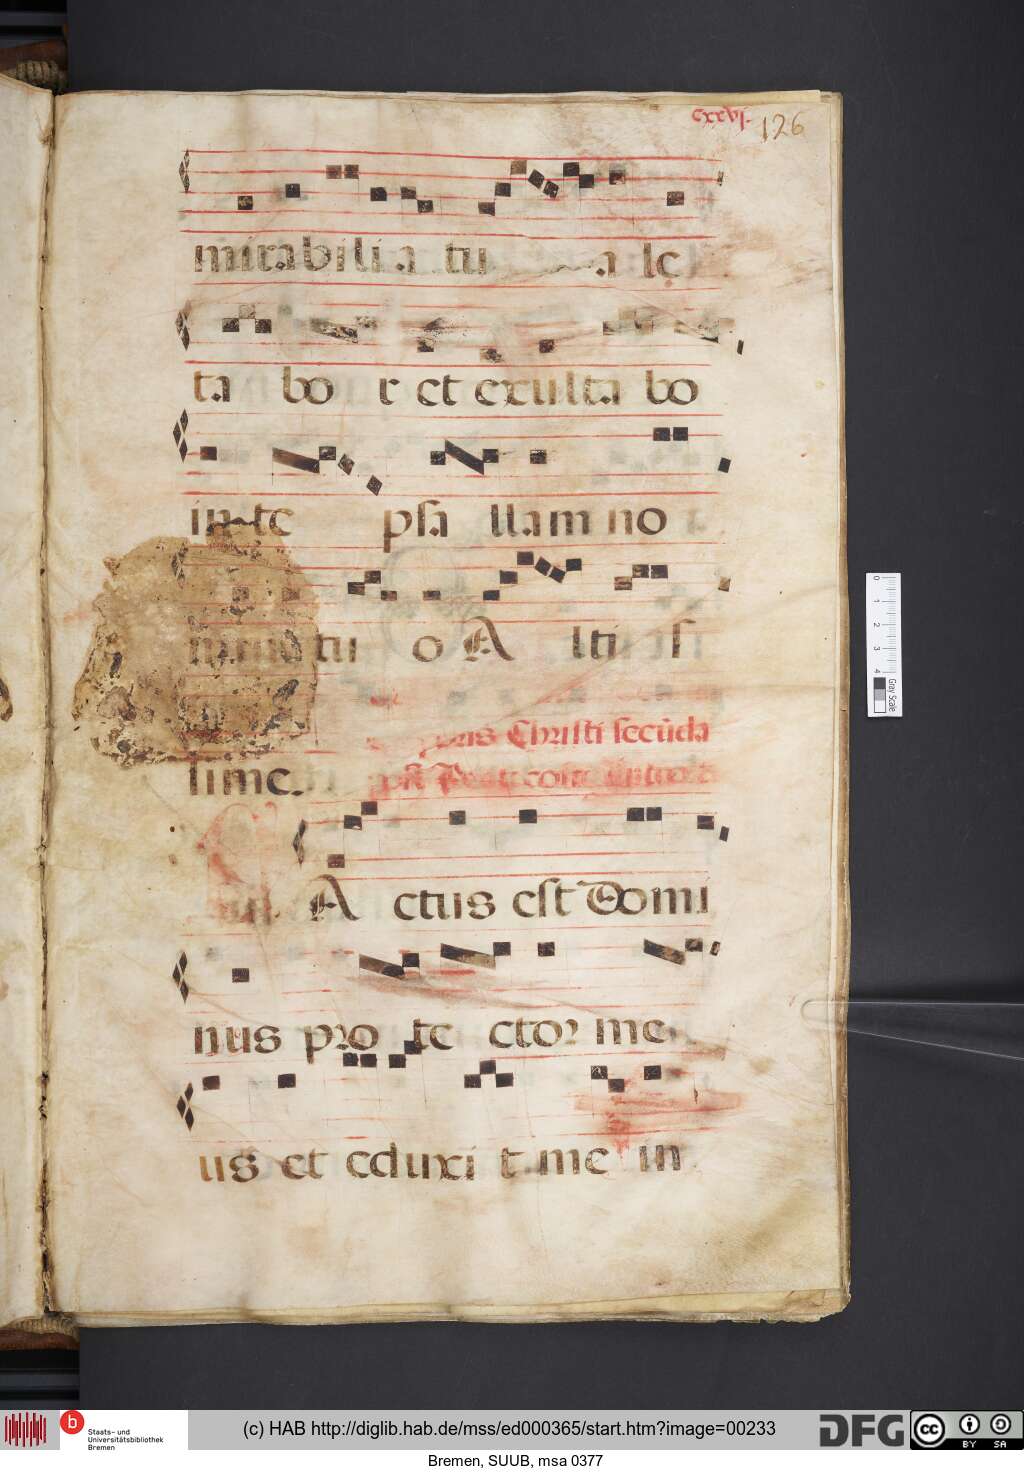 cxxvj. 126
mirabilia tu a le
ta bo r et exulta bo
in te psa llam no
tu o A lti ssi
Christi secūda
sime.
A ctus est Domi
nus pro te ctor me
us et eduxi t me in
0 1 2 3 4
Gray Scale
b
Staats- und
Universitätsbibliothek
Bremen
(c) HAB http://diglib.hab.de/mss/ed000365/start.htm?image=00233
DFG
cc BY SA
Bremen, SUUB, msa 0377